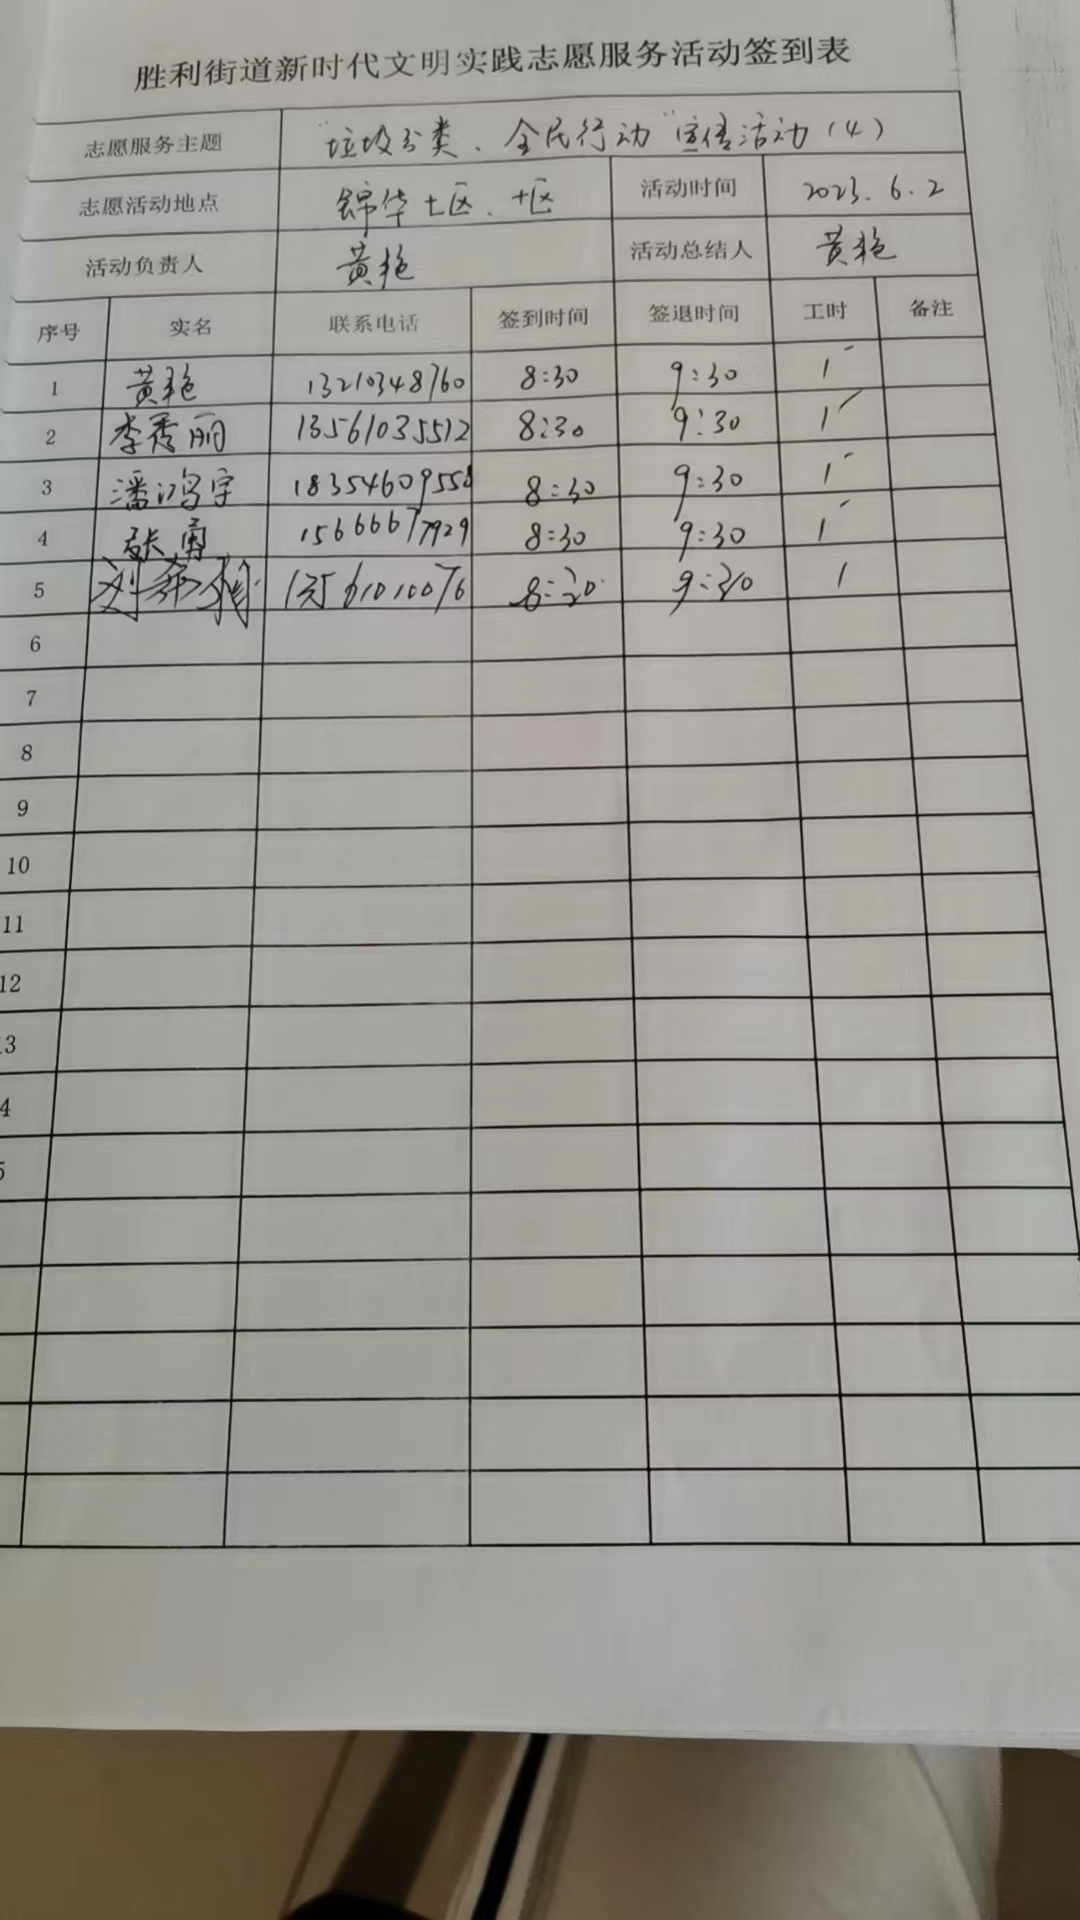 胜利街道新时代文明实践志愿服务活动签到表
志愿服务主题 "垃圾分类、全民行动"宣传活动(4)
志愿活动地点 锦华七区、十区 活动时间 2023.6.2
活动负责人 黄艳 活动总结人 黄艳
序号 实名 联系电话 签到时间 签退时间 工时 备注
1 黄艳 13210348760 8:30 9:30 1
2 李秀丽 13561035512 8:30 9:30 1
3 潘鸿宇 18354609558 8:30 9:30 1
4 张勇 15666677929 8:30 9:30 1
5 刘 13561010076 8:30 9:30 1
6
7
8
9
10
11
12
3
4
5